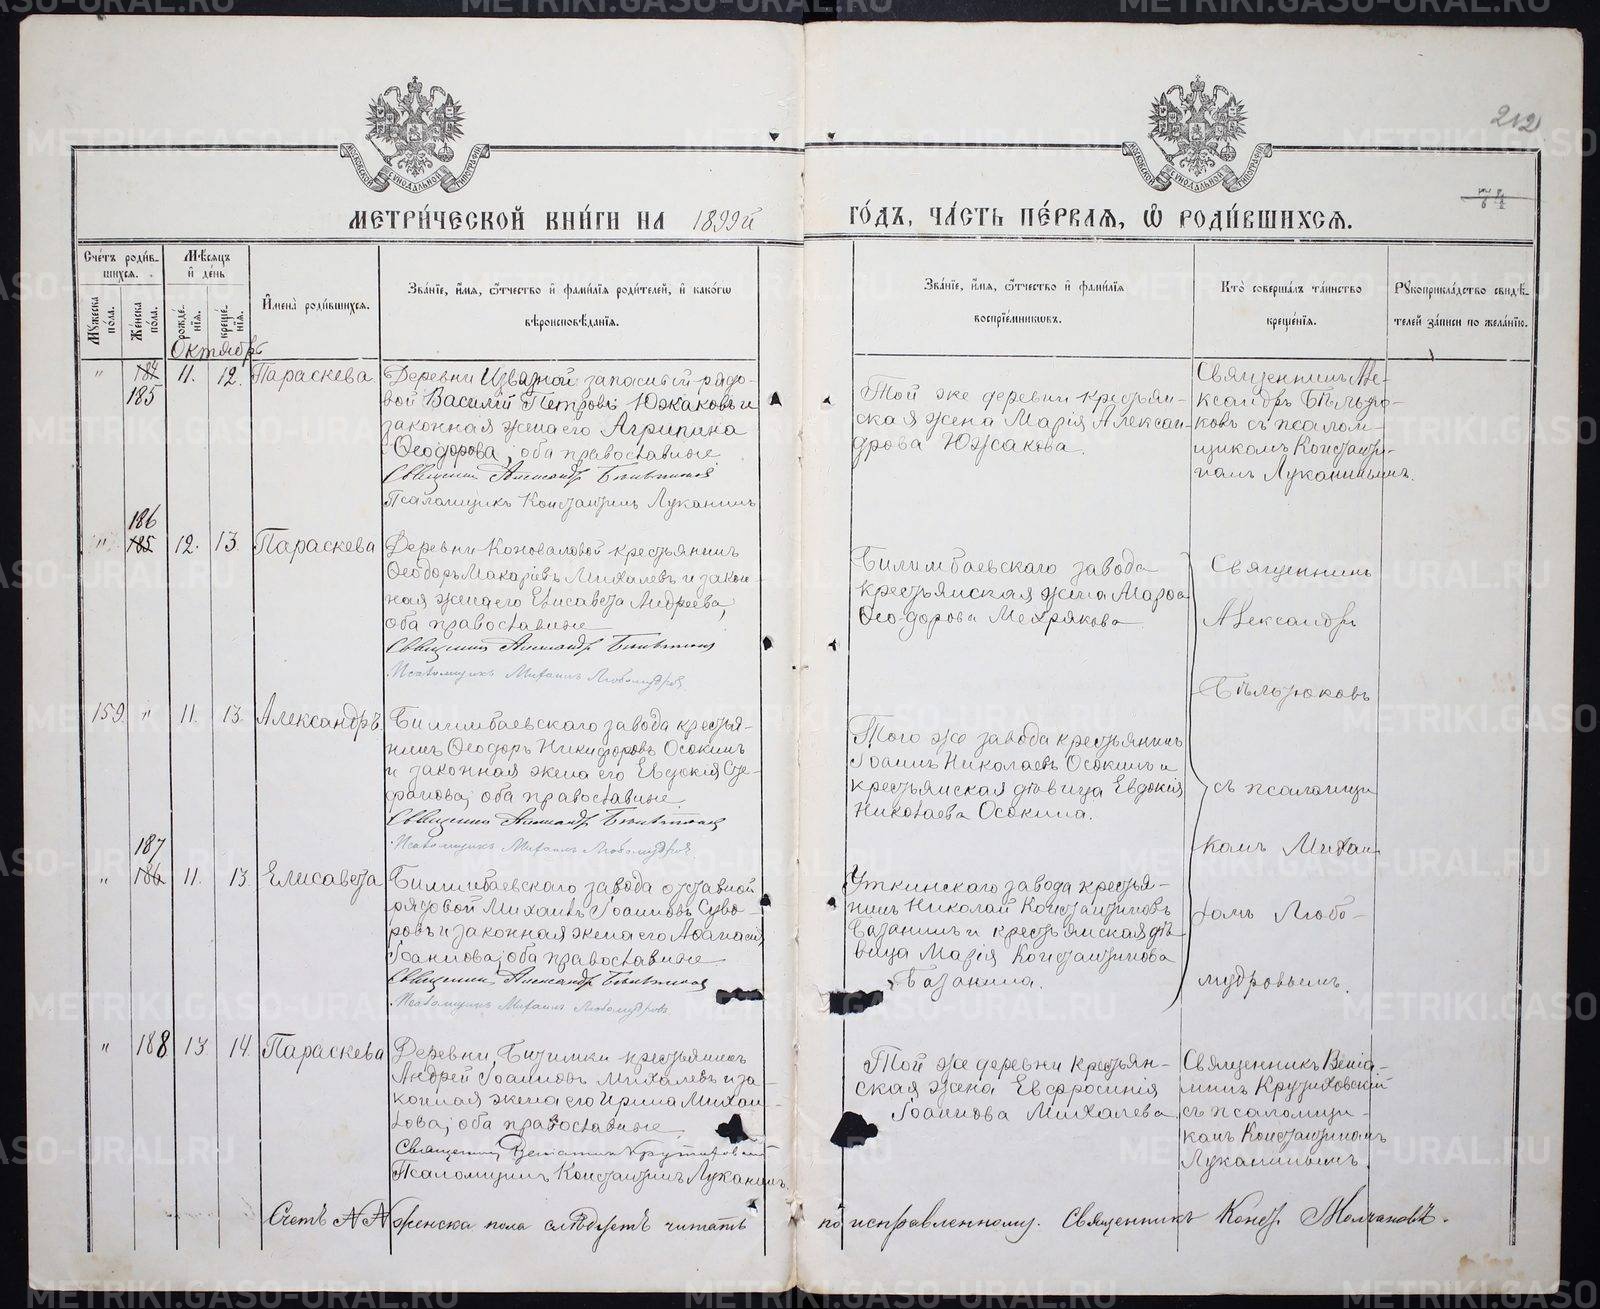 212
МЕТРИ́ЧЕСКОЙ КНИ́ГИ НА 1899й ГО́ДЪ, ЧА́СТЬ ПЕ́РВАЯ, Ѡ҆ РОДИ́ВШИХСЯ.
Сче́тъ роди́вшихся.
Мѣ́сяцъ и҆ де́нь
Мꙋ́жеска по́ла.
Же́нска по́ла.
рожде́нїя.
креще́нїя.
И҆мена̀ роди́вшихся.
Зва́нїе, и҆́мя, ѻ҆́тчество и҆ фами́лїя роди́телей, и҆ како́гѡ
вѣроисповѣ́данїя.
Зва́нїе, и҆́мя, ѻ҆́тчество и҆ фами́лїя
воспрїе́мниковъ.
Кто̀ соверша́лъ та́инство
креще́нїя.
Рꙋкоприкла́дство свидѣ́телей за́писи по жела́нїю.
Октябрь
" 184 185 11. 12. Параскева
Деревни Извѣзной запасный рядо-
вой Василій Петровъ Южаковъ и
законная жена его Агрипина
Ѳеодорова, оба православные
Священникъ Александръ Бѣльтюковъ
Псаломщикъ Константинъ Луканинъ
Той же деревни крестьян-
ская жена Марія Алексан-
дрова Южакова.
Священникъ Але-
ксандръ Бѣльтю-
ковъ съ псалом-
щикомъ Константи-
номъ Луканинымъ.
" 186 185 12. 13. Параскева
Деревни Коноваловой крестьянинъ
Ѳеодоръ Макаріевъ Михалевъ и закон-
ная жена его Елисавета Андреева,
оба православные
Священникъ Александръ Бѣльтюковъ
Псаломщикъ Михаилъ Любомудровъ
Билимбаевскаго завода
крестьянская жена Марѳа
Ѳеодорова Мехрякова
Священникъ
Александръ
Бѣльтюковъ
съ псаломщи
комъ Михаи
ломъ Любо-
мудровымъ.
159 " 11. 13. Александръ
Билимбаевскаго завода крестья-
нинъ Ѳеодоръ Никифоровъ Осокинъ
и законная жена его Евдокія Сте-
фанова, оба православные
Священникъ Александръ Бѣльтюковъ
Псаломщикъ Михаилъ Любомудровъ
Того же завода крестьянинъ
Іоаннъ Николаевъ Осокинъ и
крестьянская дѣвица Евдокія
Николаева Осокина.
" 187 186 11. 13. Елисавета
Билимбаевскаго завода отставной
рядовой Михаилъ Іоанновъ Суво-
ровъ и законная жена его Аѳанасія
Іоаннова, оба православные
Священникъ Александръ Бѣльтюковъ
Псаломщикъ Михаилъ Любомудровъ
Уткинскаго завода крестья-
нинъ Николай Константиновъ
Базанинъ и крестьянская дѣ-
вица Марія Константинова
Базанина.
" 188 13 14. Параскева
Деревни Битимки крестьянинъ
Андрей Іоанновъ Михалевъ и за-
конная жена его Ирина Михаи-
лова, оба православные
Священникъ Веніаминъ Крутиховскій
Псаломщикъ Константинъ Луканинъ.
Той же деревни крестьян-
ская жена Евфросинія
Іоаннова Михалева
Священникъ Веніа-
минъ Крутиховскій
съ псаломщи-
комъ Константиномъ
Луканинымъ.
Счетъ №№ женска пола слѣдуетъ читать по исправленному. Священникъ Конст. Молчановъ.